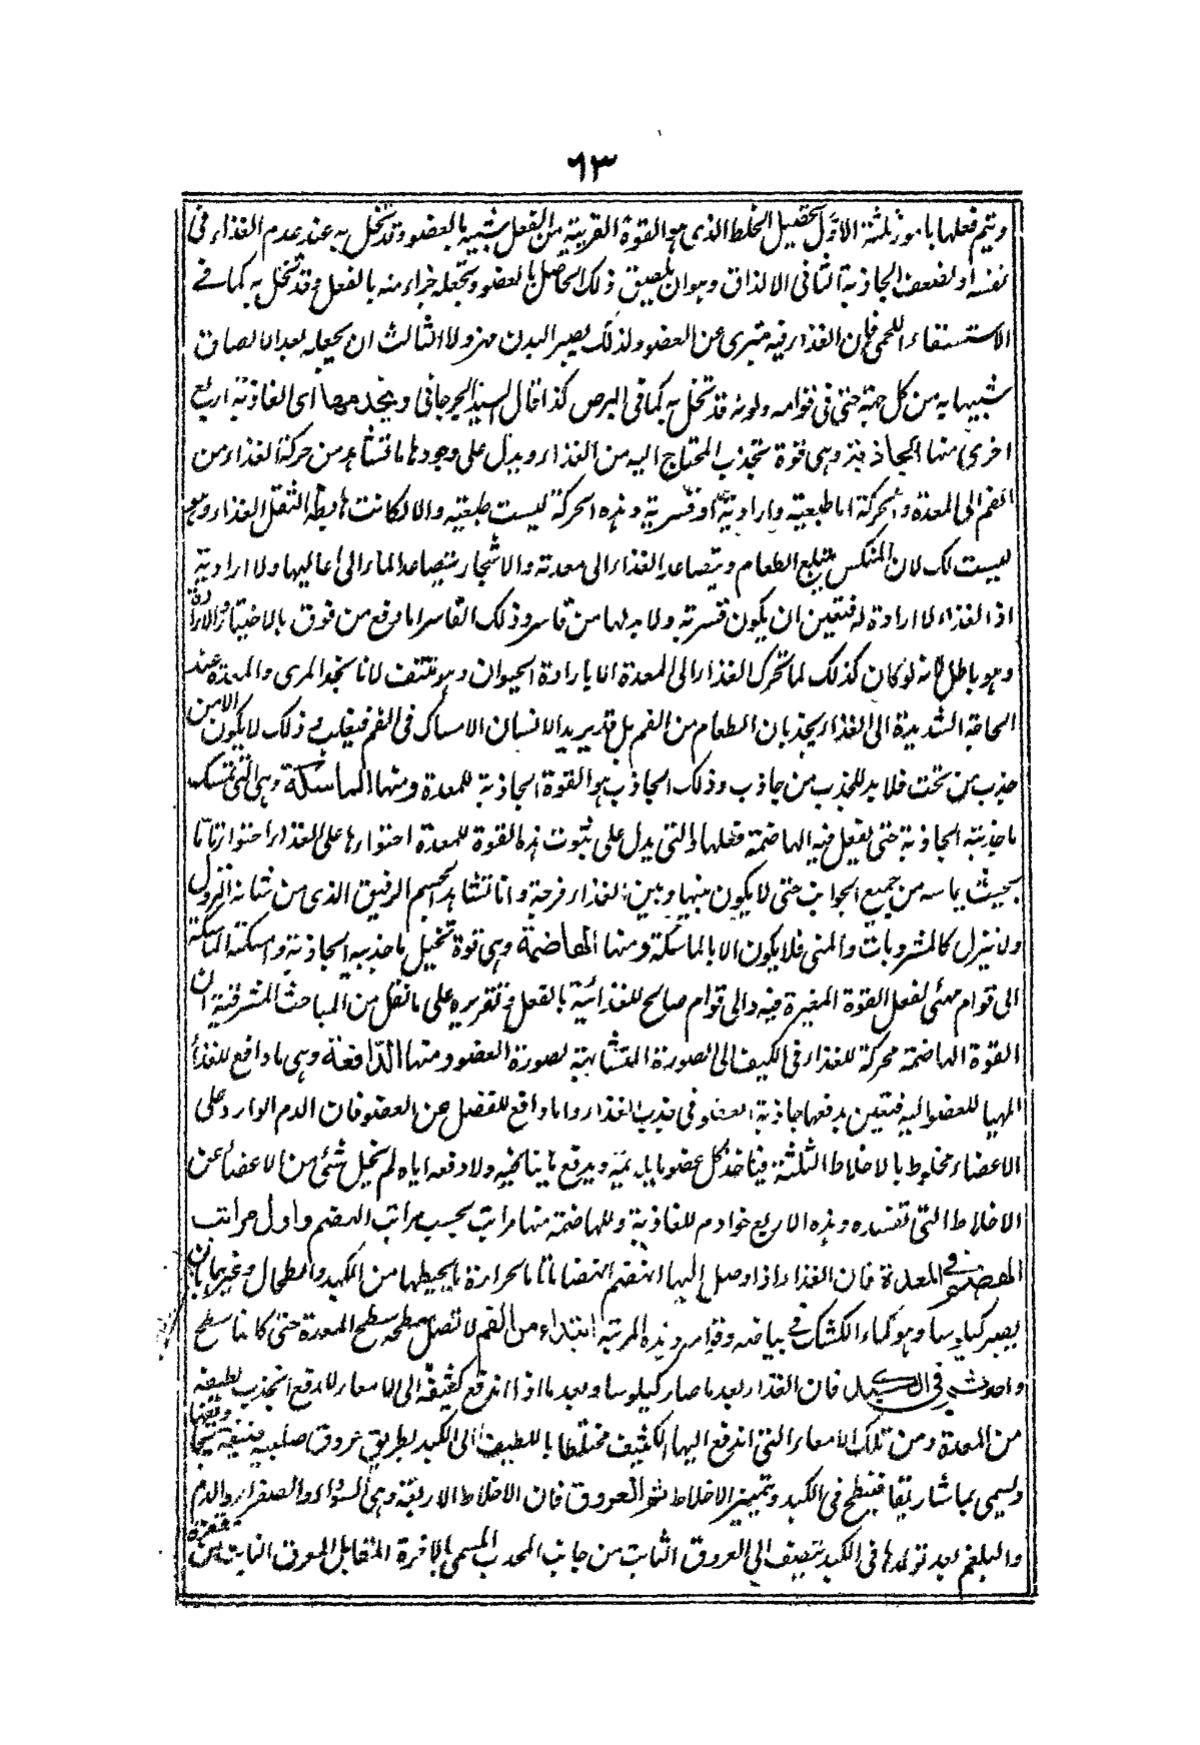 ٦٣
ويتم فعلها بامور ثلثة الاوّل تحصيل الخلط الذى هو القوة القريبة من الفعل شبيه بالعضو وقد تخل به عند عدم الغذاء فى
نفسه او لضعف الجاذبة الثانى الالزاق وهو ان يلصق ذلك الحاصل بالعضو ويجعله جزاء منه بالفعل وقد تخل به كما فے
الاستسقاء اللحمى فان الغذاء فيه متبرى عن العضو ولذلك يصير البدن مهزولا الثالث ان يجعله بعد الالصاق
شبيها به من كل جهة حتى فى قوامه ولونه قد تخل به كما فى البرص كذا قال السيد الجرجانى ويخدمها اى الغاذية اربع
اخرى منها الجاذبة وهى قوة تجذب المحتاج اليه من الغذاء ويدل على وجودها ما تشاهد من حركة الغذاء من
الفم الى المعدة والحركة اما طبعية واراديّة او قسرية وهذه الحركة ليست طبعية والا لكانت هابطة الثقل الغذاء وهى
ليست كك لان المنكس يبتلع الطعام ويتصاعد الغذاء الى معدته والاشجار يتصاعد الماء الى اعاليها ولا ارادية
اذ الغذاء لا ارادة له فتعين ان يكون قسرية ولا بد لها من قاسر وذلك القاسر اما دفع من فوق بالاختيار والارادة
وهو باطل لانه لو كان كذلك لما تحرك الغذاء الى المعدة الا بارادة الحيوان وهو منتف لانا نجد المرى والمعدة عند
الحاجة الشديدة الى الغذاء يجذبان الطعام من الفم بل قد يريد الانسان الامساك فى الفم فيغلب وذلك لا يكون الا من
جذب من تحت فلا بد للجذب من جاذب وذلك الجاذب هو القوة الجاذبة للمعدة ومنها الماسكة وهى التى تمسك
ما جذبته الجاذبة حتى يفعل فيه الهاضمة فعلها والتى يدل على ثبوت هذه القوة للمعدة احتواءها على الغذاء احتواء تامّا
بحيث يماسه من جميع الجوانب حتى لا يكون بينها وبين الغذاء فرجة وانا نشاهد الجسم الرقيق الذى من شانه النزول
ولا ينزل كالمشروبات والمنى فلا يكون الا بالماسكة ومنها الهاضمة وهى قوة تحيل ما جذبه الجاذبة وامسكته الماسكة
الى قوام مهئى لفعل القوة المغيرة فيه والى قوام صالح للغذائية بالفعل وتقريره على ما نقل من المباحث المشرقية ان
القوة الهاضمة محركة للغذاء فى الكيف الى الصورة المتشابهة لصورة العضو ومنها الدّافعة وهى ما دافع للغذاء
المهيا للعضو اليه فتعين بدفعها جاذبة العضو فى جذب الغذاء واما دافع للفضل عن العضو فان الدم الوارد على
الاعضاء مخلوط بالاخلاط الثلثة فياخذ كل عضو ما يلايمه ويدفع ما ينافيه ولا دفعه اياه لم تخل شئى من الاعضاء عن
الاخلاط التى تفسده وهذه الاربع خوادم للغاذية وللهاضمة منها مراتب بحسب مراتب الهضم واول مراتب
الهضم فى المعدة فان الغذاء اذا وصل اليها انهضم انهضاما تاما بالحرارة ما يحيطها من الكبد والطحال وغيرهما بان
يصير كيلوسا وهو كماء الكشك فى بياضه وقوامه وهذه المرتبة ابتداء من الفم لاتصال سطحه سطح المعدة حتى كانا سطح
واحد ثم فى الكبد فان الغذاء بعد ما صار كيلوسا وبعد ما اذا اندفع كثيفه الى الامعاء للدفع انجذب لطيفه
من المعدة ومن تلك الامعاء التى اندفع اليها الكثيف مختلطا باللطيف الى الكبد بطريق عروق صلبة ضيقة
وليسمى بماشاريقا فينطبخ فى الكبد وتميز الاخلاط ثم العروق فان الاخلاط الاربعة وهى السوداء والصفراء والدم
والبلغم بعد تولدها فى الكبد تنصب الى العروق الثابت من جانب المحدب المسمى بالاخرة المقابل للعرق النابت من